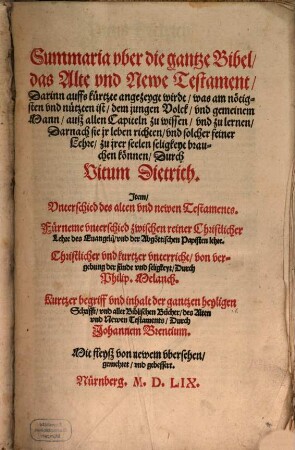 Summaria vber die gantze Bibel/
das Alte vnd Newe Testament/
Darinn auffs kürtzte angezeygt wirdt/ was am nötig-
sten vnd nützten ist/ dem jungen Volck/ vnd gemeinem
Mann/ auß allen Capiteln zu wissen/ vnd zu lernen/
Darnach sie jr leben richten/ vnd solcher feiner
Lehre/ zu jrer seelen seligkeyt brau-
chen können/ Durch
Vitum Dietrich.
Item/
Vnterschied des alten vnd newen Testamentes.
Fürneme vnterschied zwischen reiner Christlicher
Lehre des Euangelij/ vnd der Abgötischen Papisten lehre.
Christlicher vnd kurtzer vnterricht/ von ver-
gebung der sünde vnd seligkeyt/ Durch
Philip. Melanch.
Kurtzer begriff vnd inhalt der gantzen heyligen
Schrifft/ vnd aller Biblischen Bücher/ des Alten
vnd Newen Testaments/ Durch
Johannem Brentium.
Mit fleyß von newem vbersehen/
gemehret vnd gebessert.
Nürnberg. M. D. LIX.